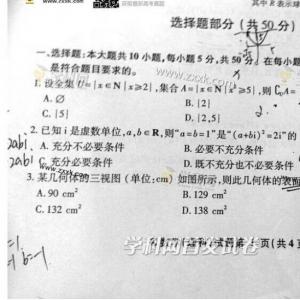 www.zxxk.com
其中 R 表示球
选择题部分（共 50 分）
一、选择题：本大题共 10 小题，每小题 5 分，共 50 分。在每
是符合题目要求的。
1. 设全集 U={x∈N|x≥2}，集合 A={x∈N|x²≥5}，则 ∁UA=
A. ∅ B. {2}
C. {5} D. {2,5}
2. 已知 i 是虚数单位，a,b∈R，则“a=b=1”是“(a+bi)²=2i”的
A. 充分不必要条件 B. 必要不充分条件
C. 充分必要条件 D. 既不充分也不必要条件
3. 某几何体的三视图（单位：cm）如图所示，则此几何体的表面
A. 90 cm² B. 129 cm²
C. 132 cm² D. 138 cm²
2abi
2abi
=1
-1 b=-1
页（共 4